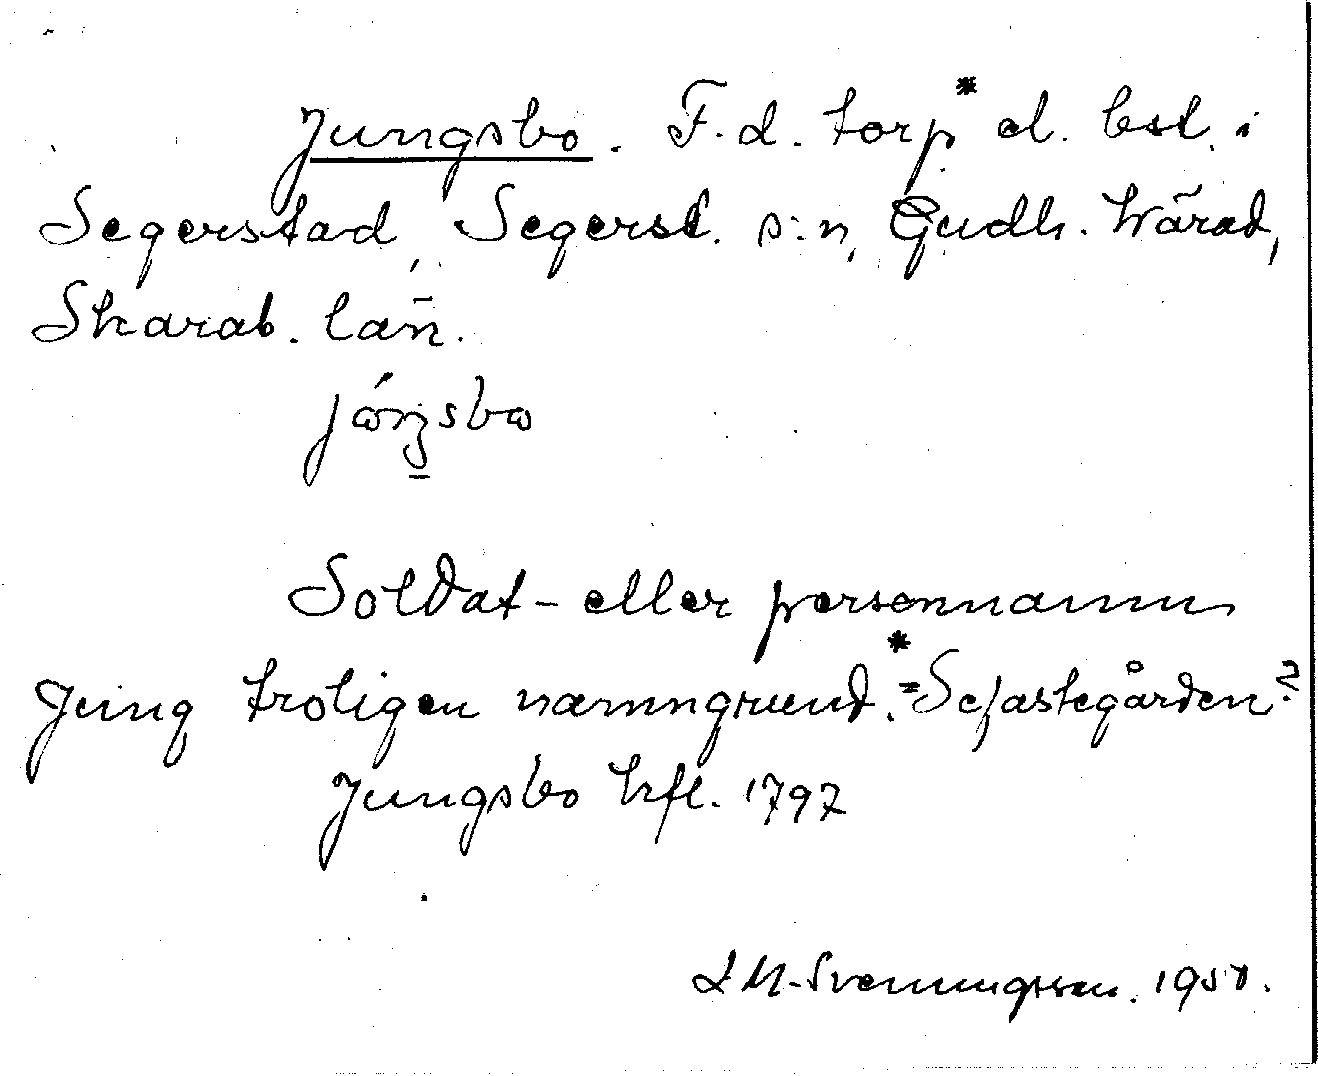 Jungsbo. F.d. torp* el. bst. i
Segerstad, Segerst. s:n, Gudh. härad,
Skarab. län.
Soldat- eller personnamn
Jung troligen namngrund. *=Sefastegården?
Jungsbo hfl. 1797